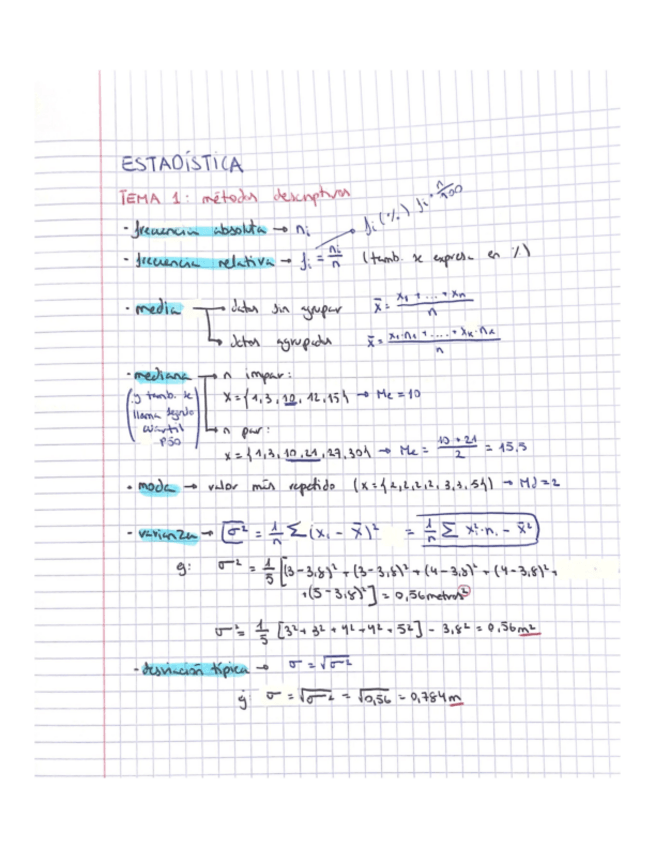 ESTADÍSTICA
TEMA 1: métodos descriptivos
- frecuencia absoluta → nᵢ
fᵢ (%) fᵢ · n/100
- frecuencia relativa → fᵢ = nᵢ/n (tamb. se expresa en %)
- media → datos sin agrupar x̄ = (x₁ + ... + xₙ)/n
→ datos agrupados x̄ = (x₁·n₁ + .... + xₖ·nₖ)/n
- mediana → n impar:
(y tamb. se llama segundo cuartil P50)
X = {1, 3, 10, 12, 15} → Me = 10
→ n par:
x = {1, 3, 10, 21, 27, 30} → Me = (10 + 21)/2 = 15,5
• moda → valor más repetido (x = {2, 2, 2, 2, 3, 3, 5}) → Md = 2
- varianza → σ² = 1/n Σ (xᵢ - x̄)² = 1/n Σ xᵢ²·nᵢ - x̄²
ej: σ² = 1/5 [(3-3,8)² + (3-3,8)² + (4-3,8)² + (4-3,8)² +
+ (5-3,8)²] = 0,56 metros²
σ² = 1/5 [3² + 3² + 4² + 4² + 5²] - 3,8² = 0,56 m²
- desviación típica → σ = √σ²
ej σ = √σ² = √0,56 = 0,784 m